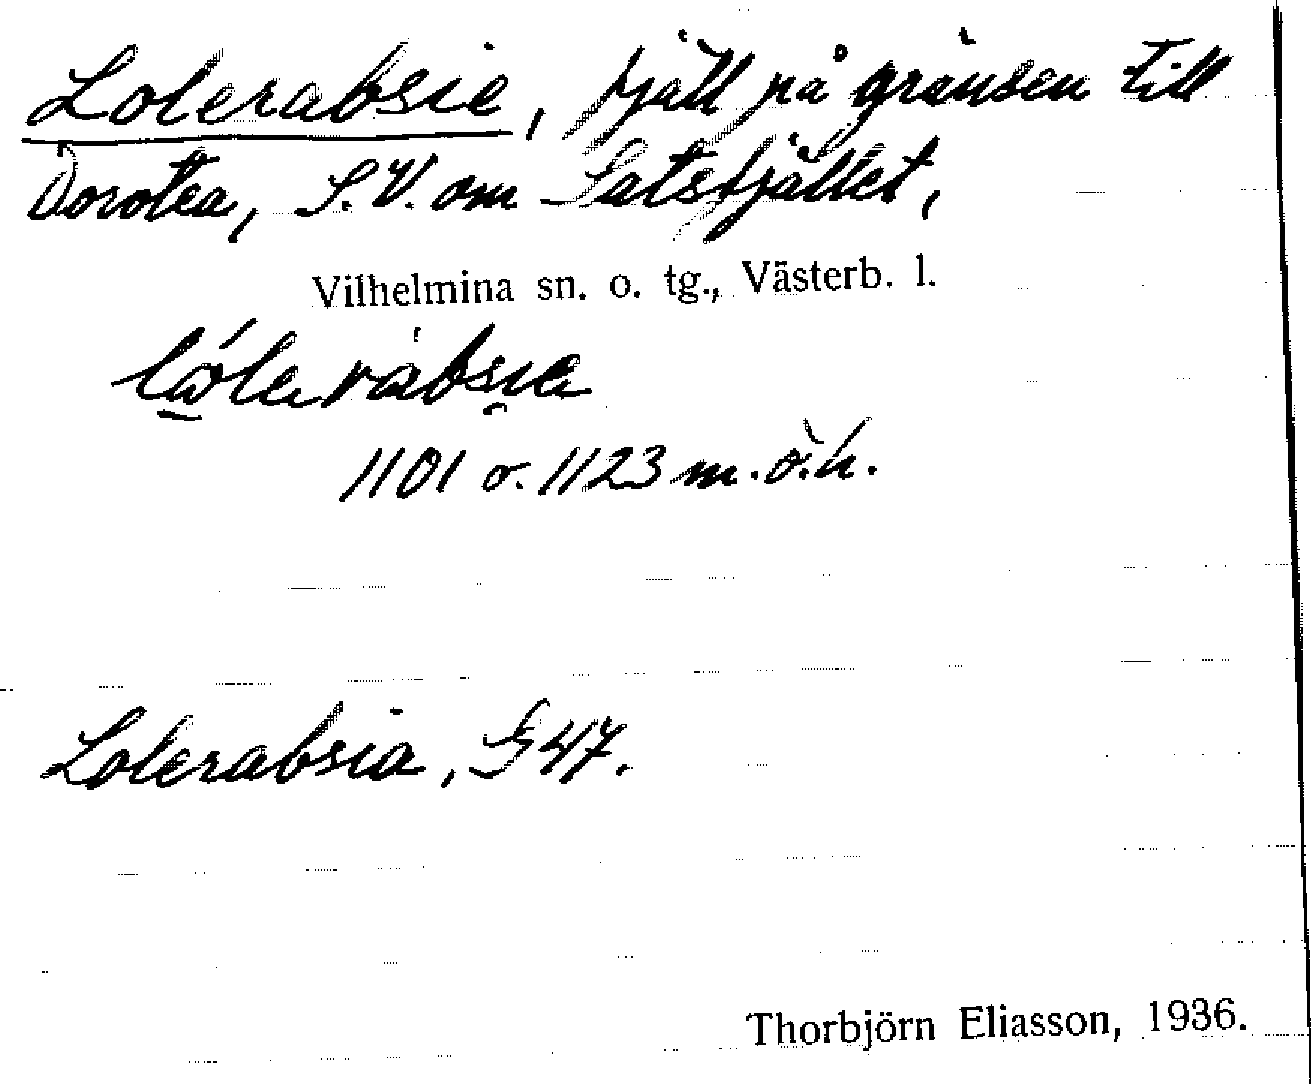 Lolerabsie, fjäll på gränsen till
Dorotea, S.V. om Satsfjället,
Vilhelmina sn. o. tg., Västerb. l.
1101 o. 1123 m.ö.h.
Lolerabsia, G 47.
Thorbjörn Eliasson, 1936.